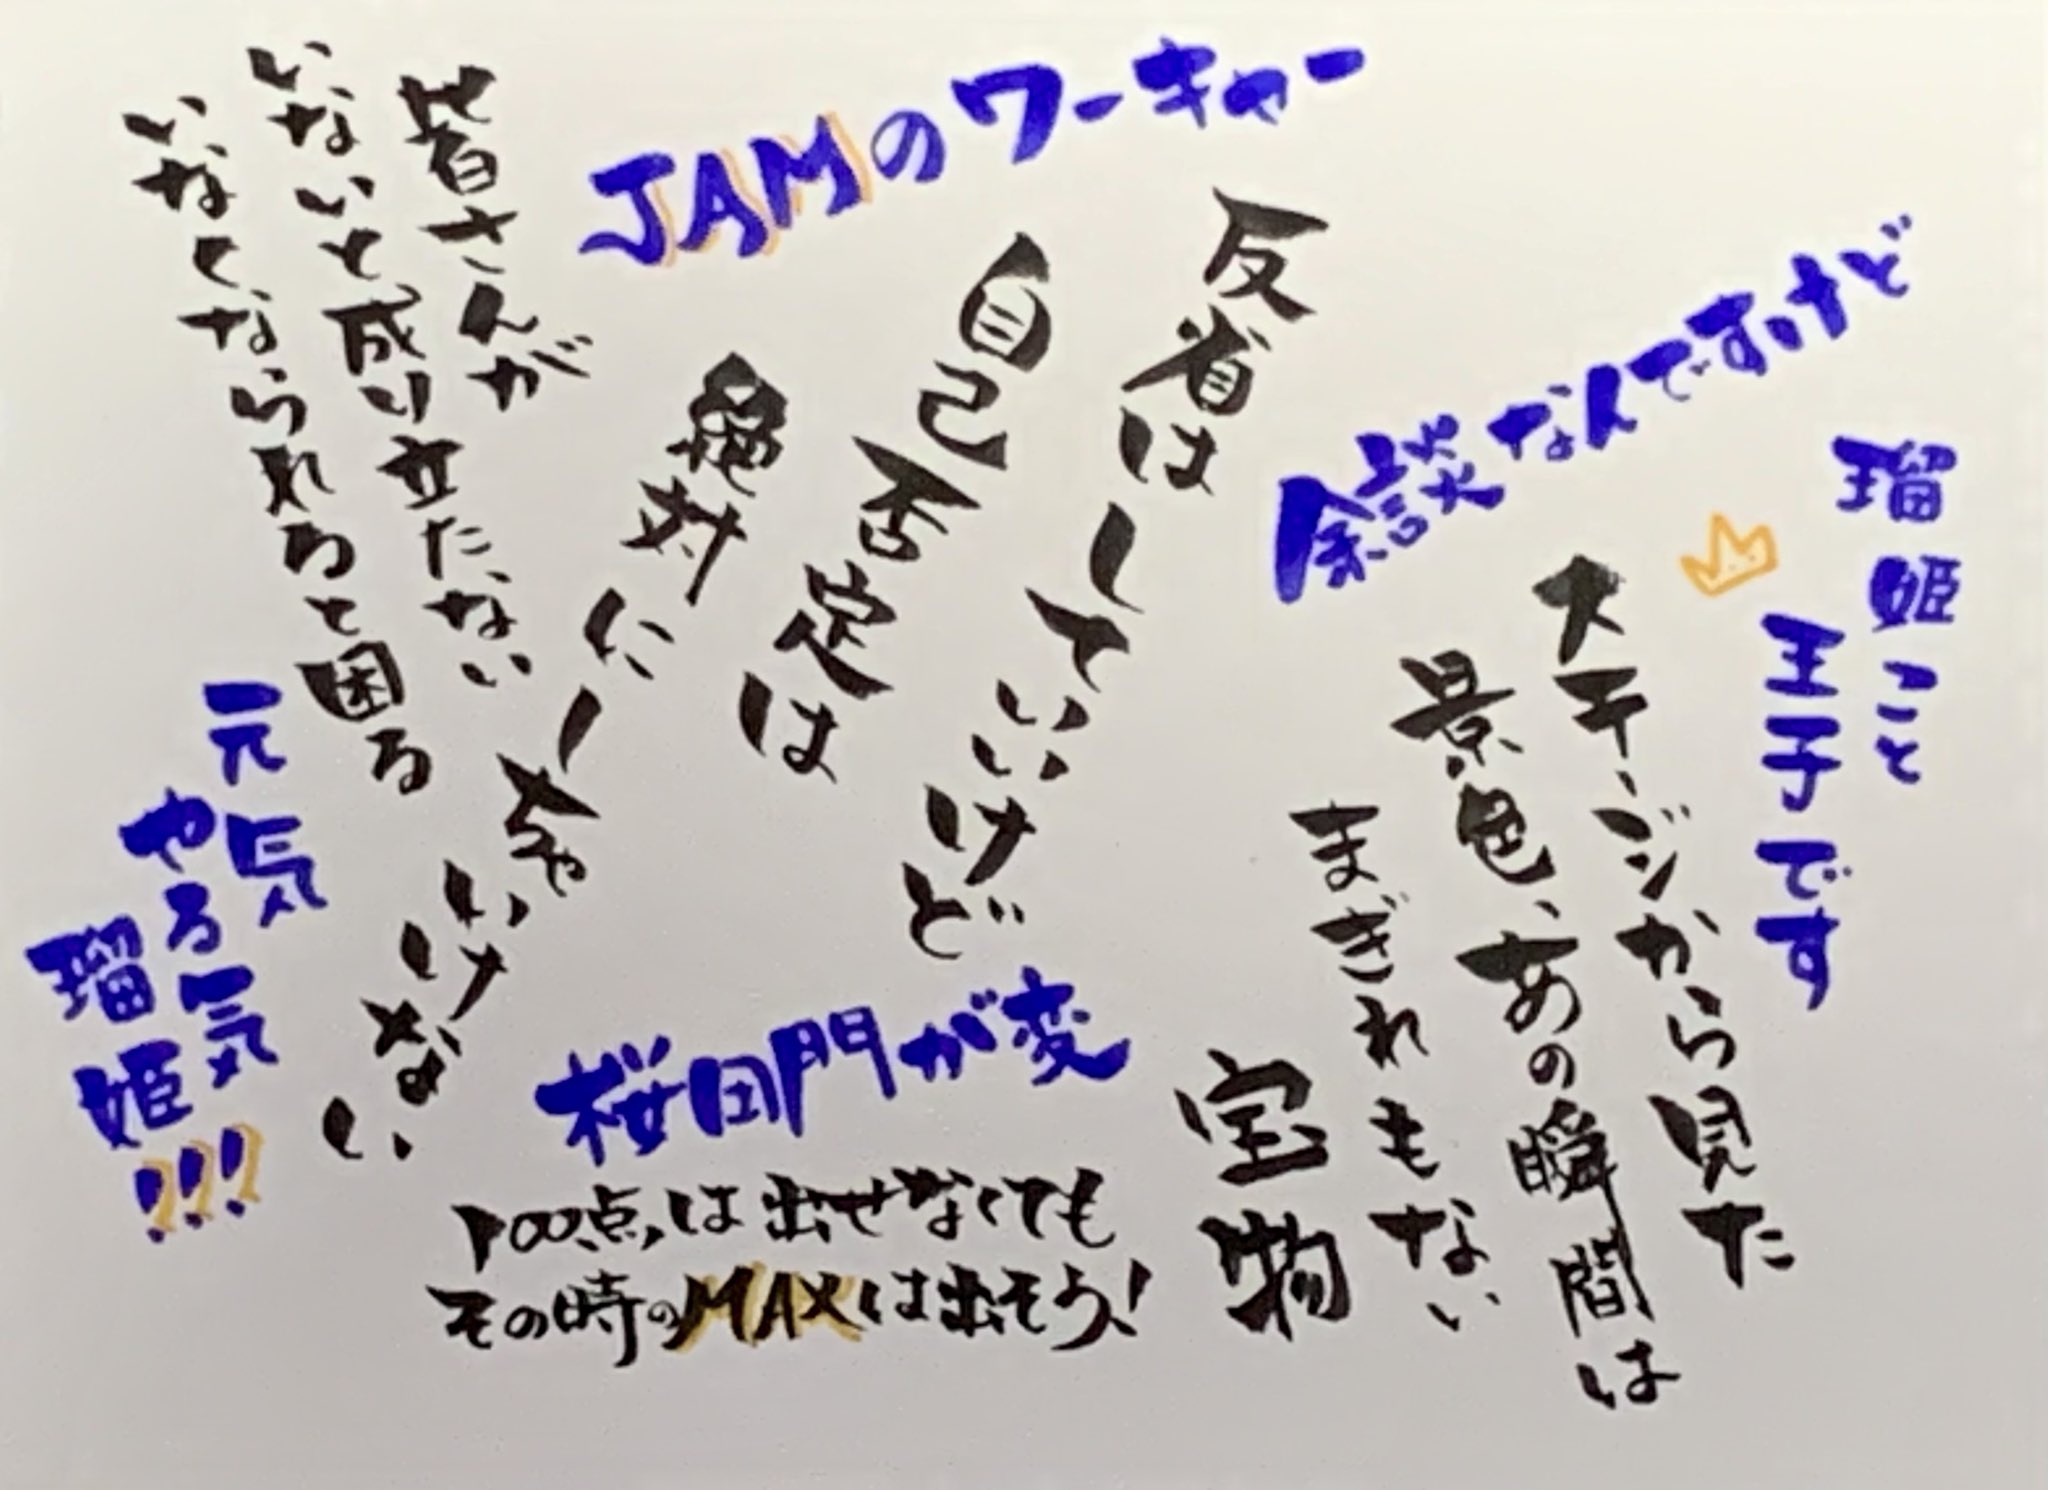 瑠姫こと
王子です
余談なんですけど
ステージから見た
景色、あの瞬間は
まぎれもない
宝物
JAMのワーキャー
反省はしていいけど
自己否定は
絶対にしちゃいけない
皆さんが
いないと成り立たない
いなくなられると困る
元気
やる気
瑠姫!!!
桜田門が変
100点は出せなくても
その時のMAXは出そう!